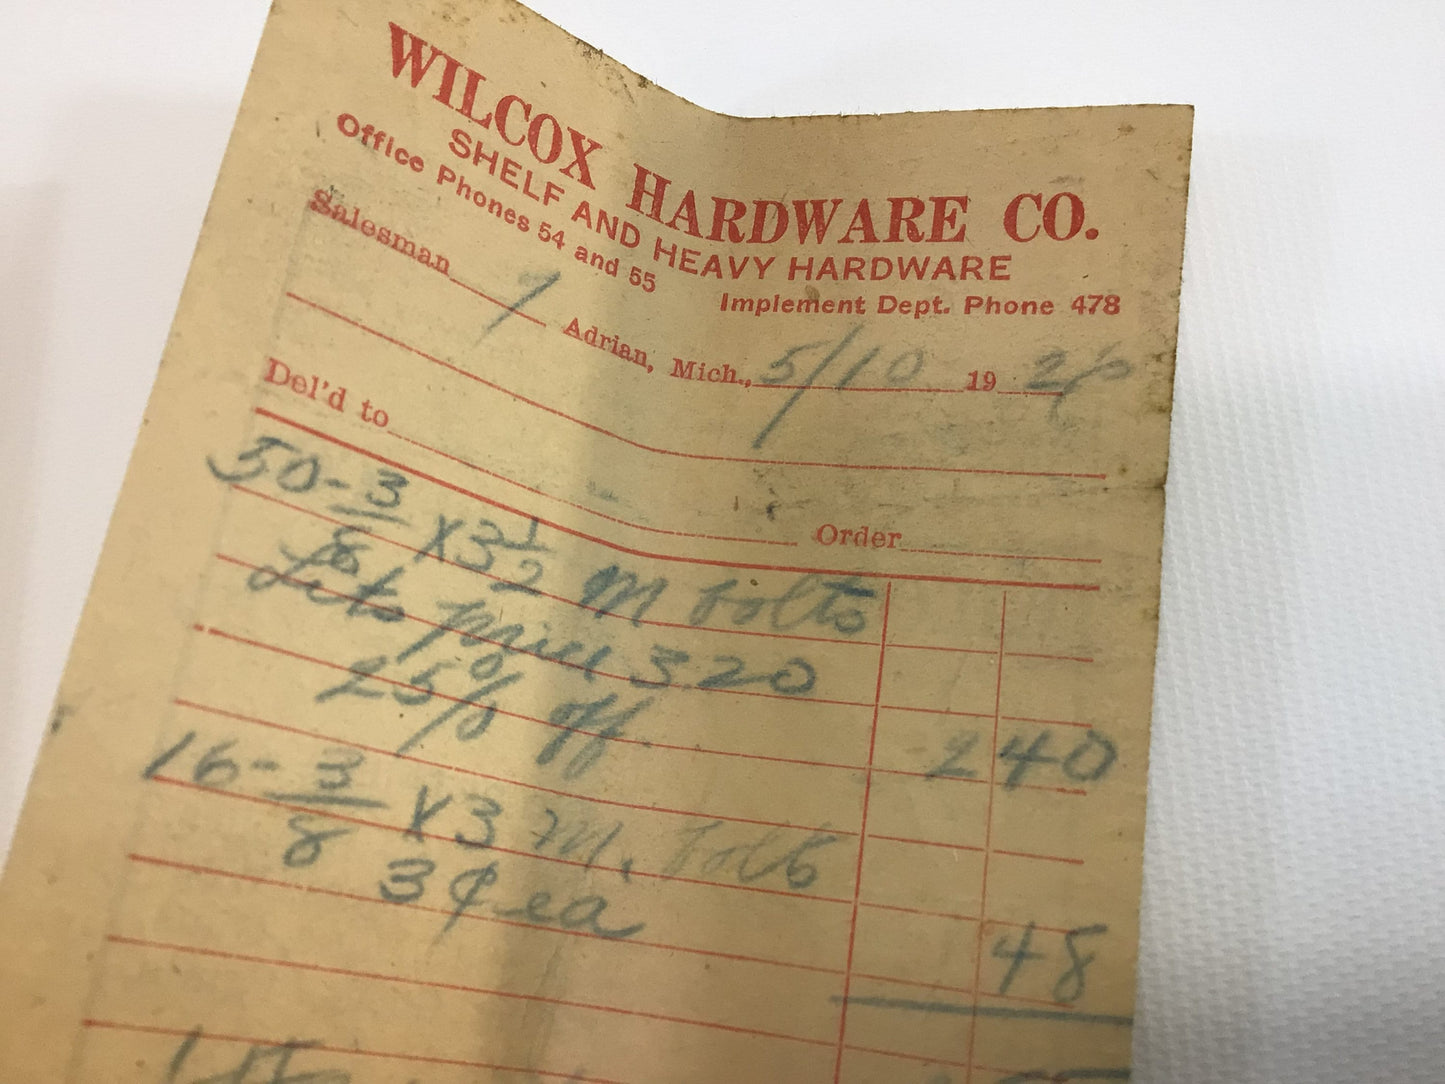 WILCOX HARDWARE CO.
SHELF AND HEAVY HARDWARE
Office Phones 54 and 55
Implement Dept. Phone 478
Salesman 7 Adrian, Mich., 5/10 19 26
Del'd to Order
50 - 3/8 x 3 1/2 M bolts
price 320
25% off. 2 40
16 - 3/8 x 3 M. bolts
3 ¢ ea 48